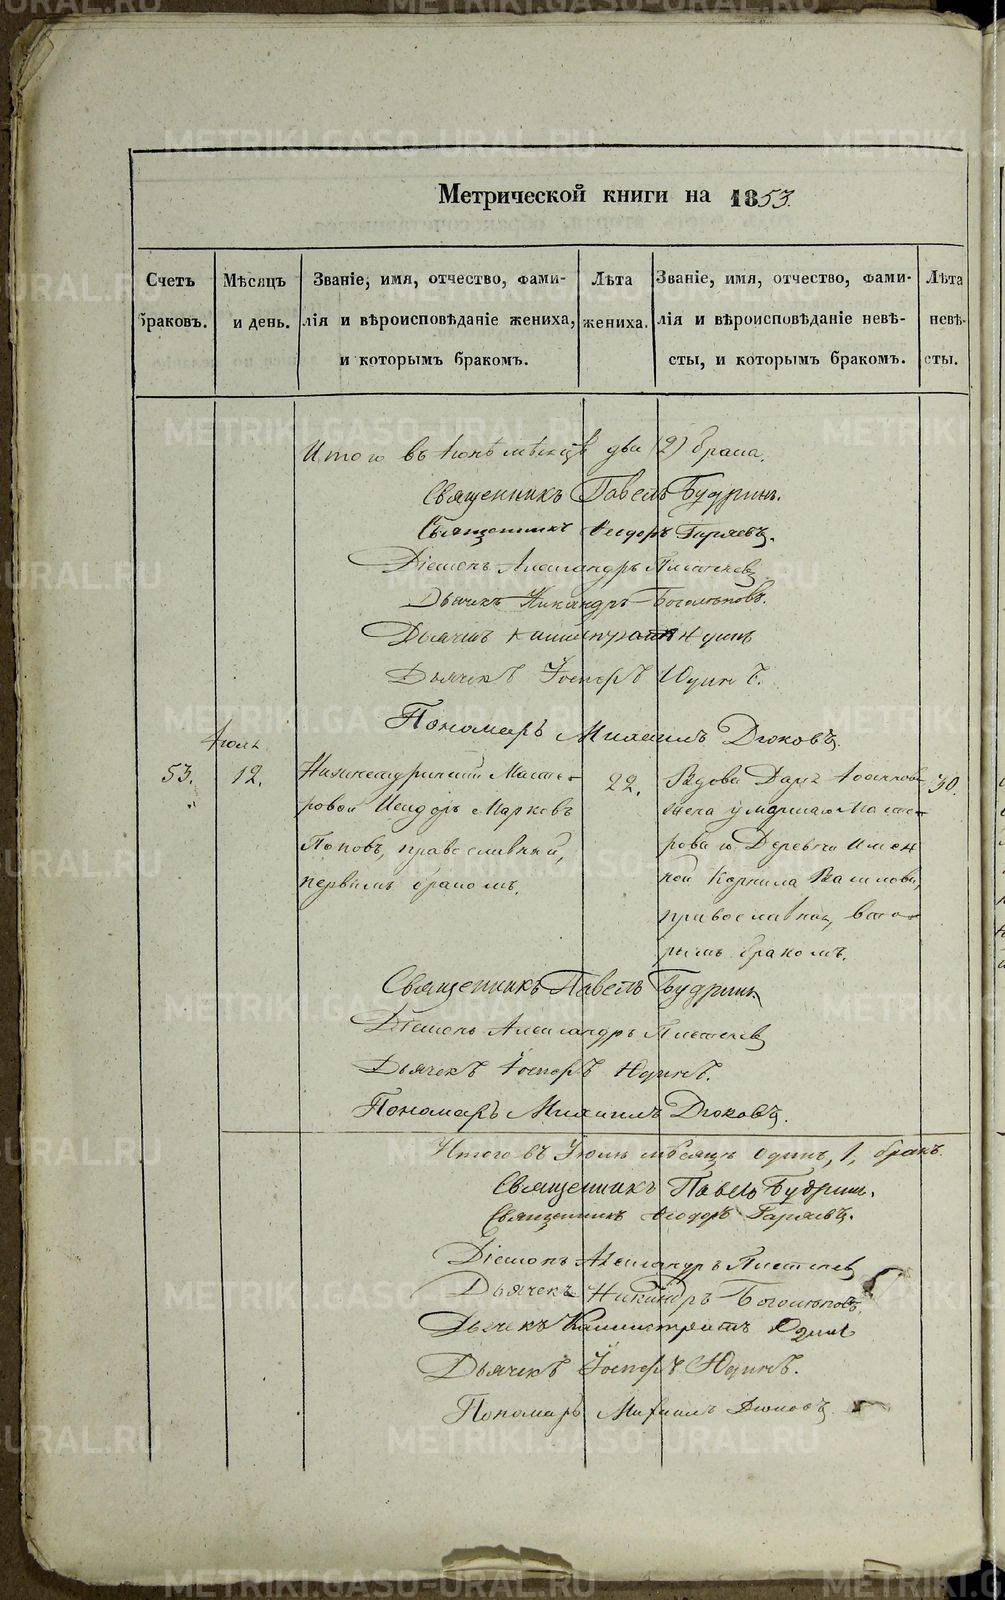 METRIKI.GASO-URAL.RU
Метрической книги на 1853.
Счетъ браковъ.
Мѣсяцъ и день.
Званіе, имя, отчество, фами-
лія и вѣроисповѣданіе жениха,
и которымъ бракомъ.
Лѣта жениха.
Званіе, имя, отчество, фами-
лія и вѣроисповѣданіе невѣ-
сты, и которымъ бракомъ.
Лѣта невѣ-
сты.
Итого въ Іюнѣ мѣсяцѣ два (2) брака.
Священникъ Павелъ Будринъ.
Священникъ Ѳеодоръ Гаряевъ.
Діаконъ Александръ
Дьячекъ Никандръ Боголѣповъ.
Дьячекъ Каллистратъ Юдинъ
Дьячекъ Іосифъ Юдинъ.
Пономарь Михаилъ Дюковъ.
Іюль
53.
12.
Мастеро-
ровой Исидоръ Марковъ
Поповъ, православный,
первымъ бракомъ.
22.
Вдова Дарья Іоаннова
жена умершаго Масте-
роваго Деревни
Корнила
православная, вто-
рымъ бракомъ.
30.
Священникъ Павелъ Будринъ
Діаконъ Александръ
Дьячекъ Іосифъ Юдинъ.
Пономарь Михаилъ Дюковъ.
Итого въ Іюлѣ мѣсяцѣ одинъ, 1, бракъ.
Священникъ Павелъ Будринъ.
Священникъ Ѳеодоръ Гаряевъ.
Діаконъ Александръ
Дьячекъ Никандръ Боголѣповъ.
Дьячекъ Каллистратъ Юдинъ
Дьячекъ Іосифъ Юдинъ.
Пономарь Михаилъ Дюковъ.